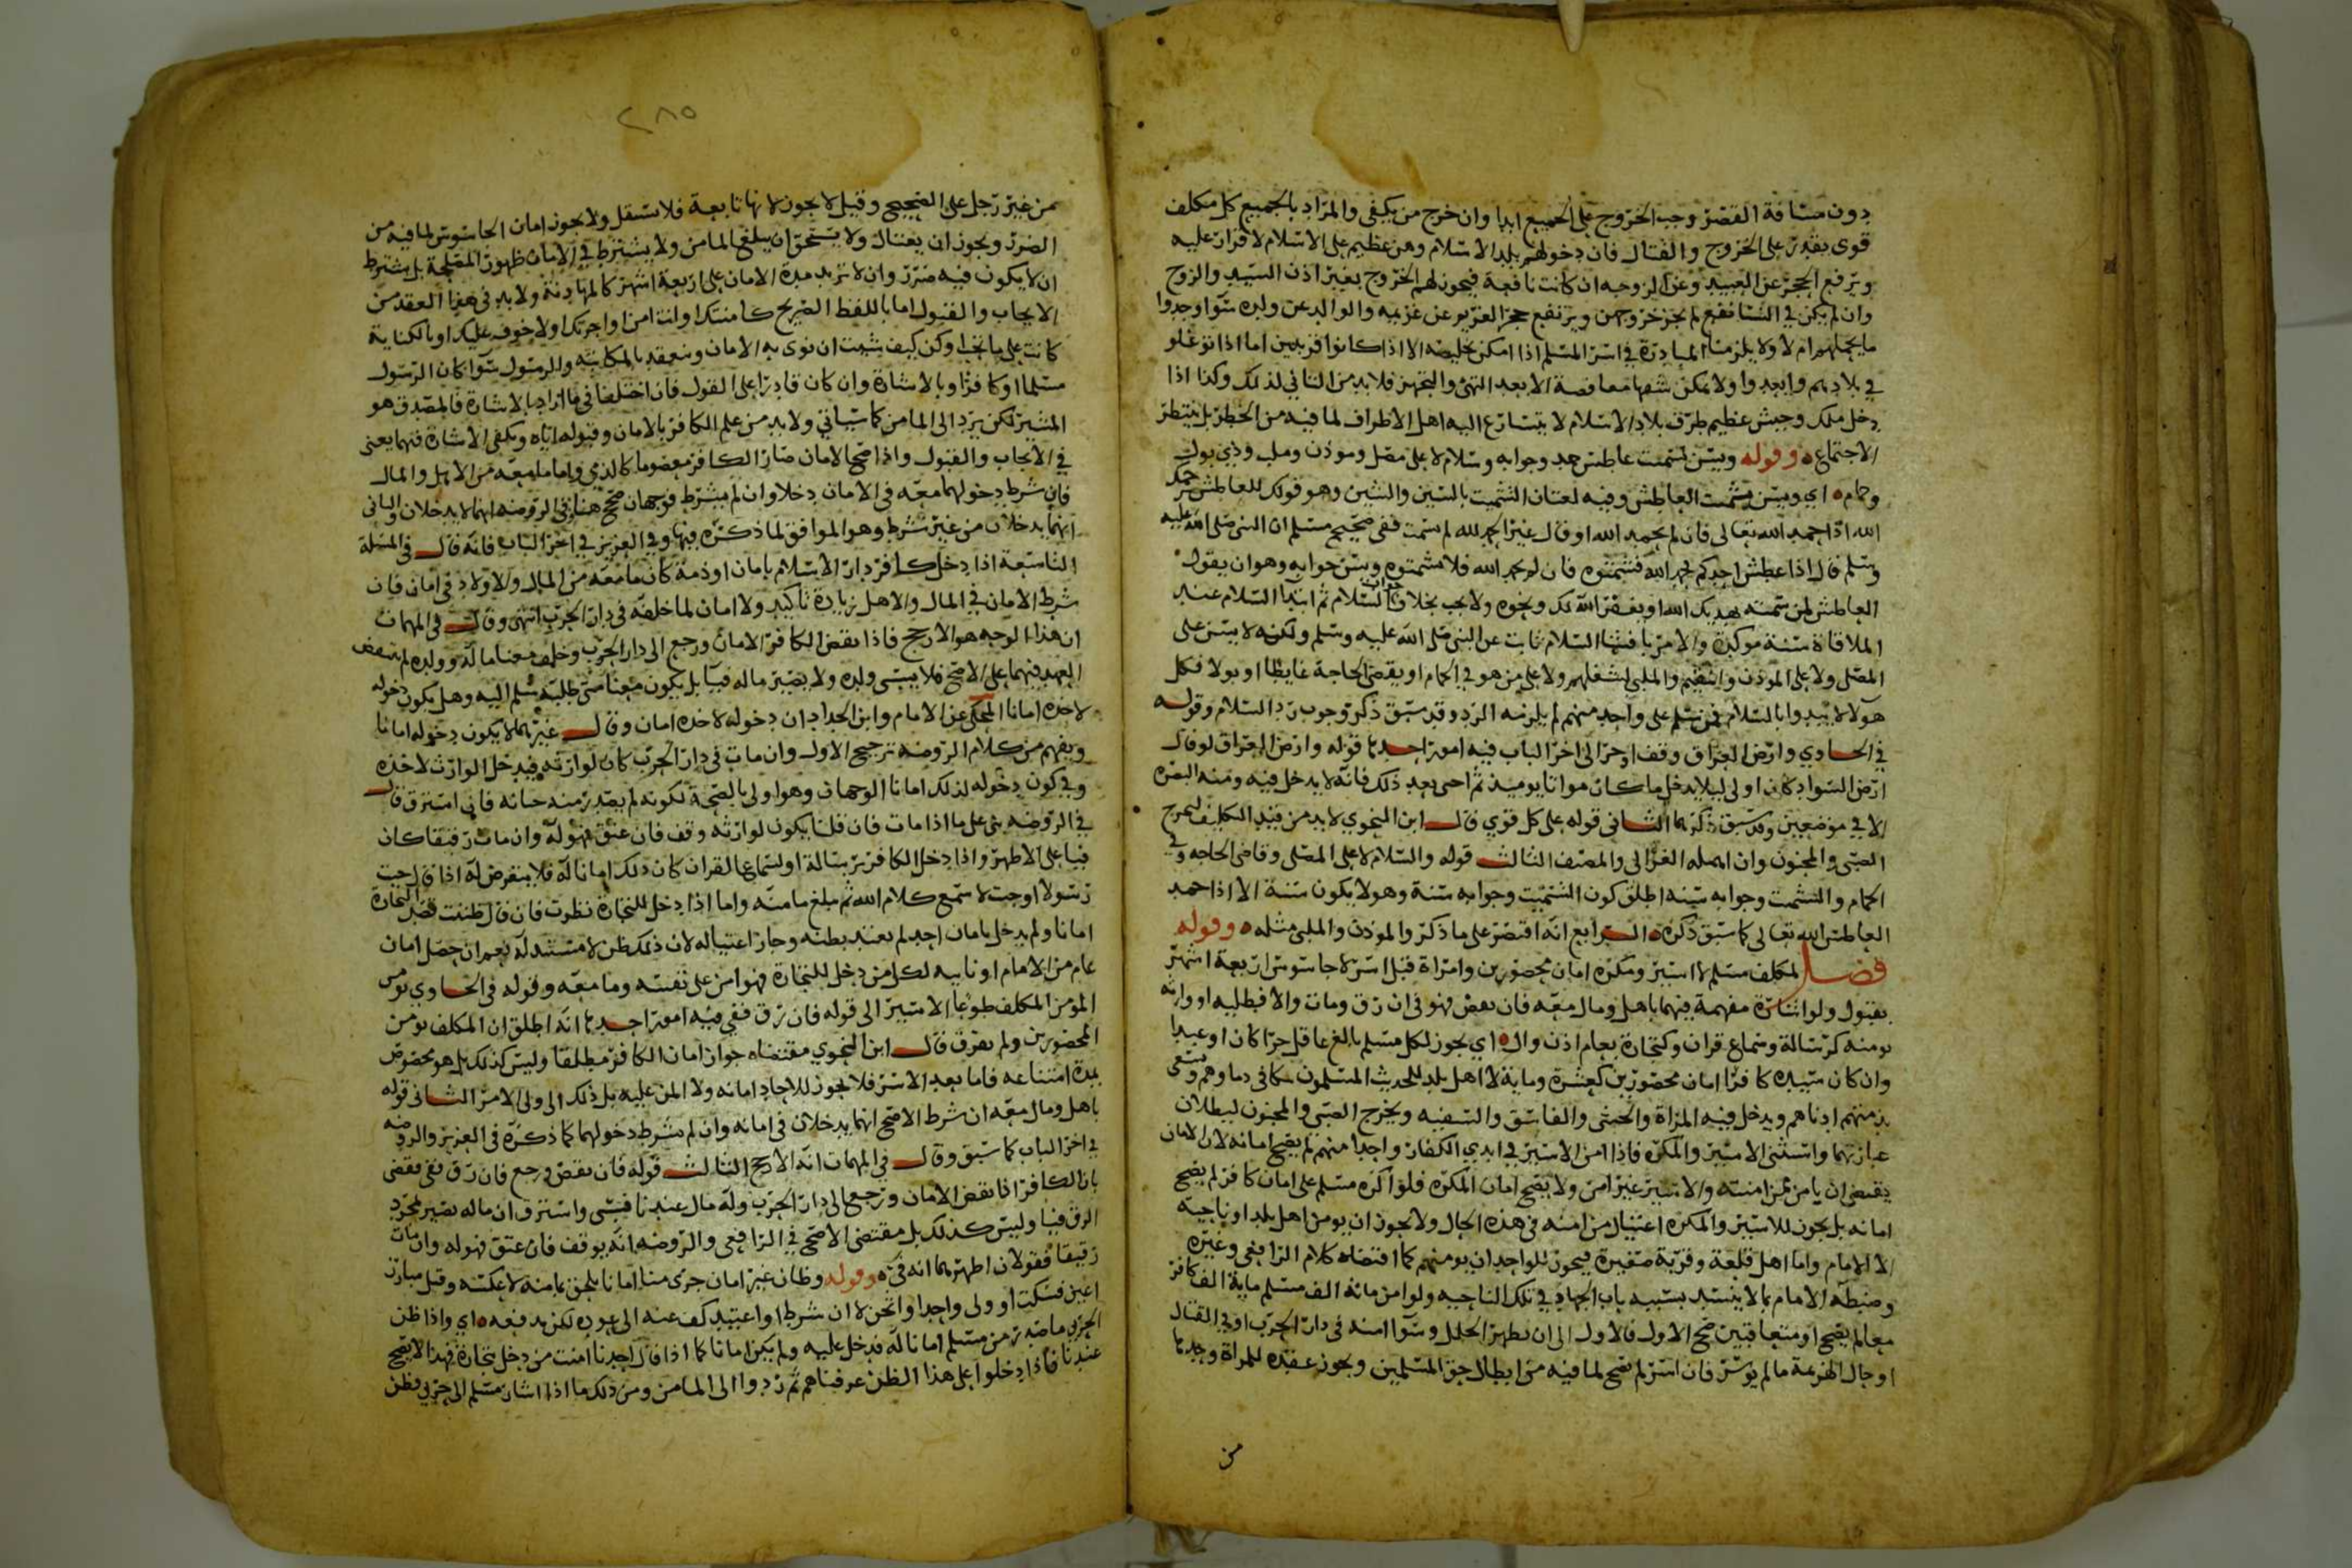 دون مسافة القصر وجب الخروج على الجميع ابدا وان خرج من يكفى والمراد بالجميع كل مكلف
قوى يقدر على الخروج والقتال فان دخولهم بلد الاسلام وهن عظيم على الاسلام لا قرار عليه
ويرفع الحجر عن العبيد وعن الزوجه ان كانت نافعة فيجوز لهم الخروج بغير اذن السيد والزوج
وان لم يكن في النسا نفع لم يجز خروجهن ويرتفع حجر الغريم عن غريمه والوالد عن ولده سوا وجدوا
ما يحملهم ام لا ولا يلزمنا المبادرة في اسر المسلم اذا امكن تخليصه الا اذا كانوا قريبين اما اذا توغلو
في بلادهم وابعدوا ولا يمكن معافصة الا بعد التهئ والتجهز فلا بد من التانى لذلك وكذا اذا
دخل ملك وجيش عظيم طرف بلاد الاسلام لا يتسارع اليه اهل الاطراف لما فيه من الخطر بل ينتظر
الاجتماع ه وقوله ويسن تشميت عاطس حمد وجوابه وسلام لا على مصل وموذن وملب وذي بول
وحمام ه اي ويسن تشميت العاطس وفيه لغتان التشميت بالسين والشين وهو قولك للعاطس يرحمك
الله اذا حمد الله تعالى فان لم يحمد الله او قال غير الحمد لله لم يشمت ففي صحيح مسلم ان النبي صلى الله عليه
وسلم قال اذا عطس احدكم فحمد الله فشمتوه فان لم يحمد الله فلا تشمتوه ويسن جوابه وهو ان يقول
العاطس لمن شمته يهديك الله او يغفر الله لك ونحوه ولا يجب بخلاف جواب السلام ثم ابتدا السلام عند
الملاقاة سنة موكدة والامر بافشا السلام ثابت عن النبي صلى الله عليه وسلم ولكنه لا يسن على
المصل ولا على الموذن والمقيم والملبى لشغلهم ولا على من هو في الحمام او يقضى الحاجة غايطا او بولا فكل
هولا لا يبدوا بالسلام فمن سلم على واحد منهم لم يلزمه الرد وقد سبق ذكر وجوب رد السلام وقوله
في الحاوي وارض العراق وقف اوجز الى اخر الباب فيه امور احدها قوله وارض العراق لو قال
ارض السواد كان اولى ليلا يدخل ما كان مواتا يوميذ ثم احى بعد ذلك فانه لا يدخل فيه ومنه البصره
الا في موضعين وقد سبق ذكرهما الثانى قوله على كل قوي قال ابن النحوي لا بد من قيد التكليف ليخرج
الصبى والمجنون وان اهمله الغزالى والمصنف الثالث قوله والسلام لا على المصلى وقاضى الحاجه وفي
الحمام والتشميت وجوابه سنه اطلق كون التشميت وجوابه سنة وهو لا يكون سنة الا اذا حمد
العاطس الله تعالى كما سبق ذكره ه الرابع انه اقتصر على ما ذكر والموذن والملبى مثله ه وقوله
فصل لمكلف مسلم لا اسير ومكره امان محصورين وامراة قبل اسر لا جاسوس اربعة اشهر
بقبول ولو اشارة مفهمة فيهما باهل ومال معه فان نقض فهو فى ان رق ومات والا فطلبه او وارثه
يومنه كرسالة وسماع قران وكتجارة بعام اذن وال ه اي يجوز لكل مسلم بالغ عاقل حرا كان او عبدا
وان كان سيده كافرا امان محصورين كعشرة وماية لا اهل بلد للحديث المسلمون تتكافى دماوهم ويسعى
بذمتهم ادناهم ويدخل فيه المراة والخنثى والفاسق والسفيه ويخرج الصبى والمجنون لبطلان
عبارتهما واستثنى الاسير والمكره فاذا امن الاسير في ايدي الكفار واحدا منهم لم يصح امانه لان الامان
يقتضى ان يامن من امنه والاسير غير امن ولا يصح امان المكره فلو اكره مسلم على امان كافر لم يصح
امانه بل يجوز للاسير والمكره اغتيال من امنه في هذه الحال ولا يجوز ان يومن اهل بلد او ناحية
الا الامام واما اهل قلعة وقرية صغيرة فيجوز للواحد ان يومنهم كما اقتضاه كلام الرافعى وغيره
وضبطه الامام بما لا ينسد بسببه باب الجهاد في تلك الناحيه ولو امن مائة الف مسلم ماية الف كافر
معا لم يصح او متعاقبين صح الاول فالاول الى ان يظهر الخلل وسوا امنه فى دار الحرب او في القتال
او حال الهزيمة ما لم يوسر فان اسر لم يصح لما فيه من ابطال حق المسلمين ويجوز عقده للمراة وحدها
من
٢٨٥
من غير رجل على الصحيح وقيل لا يجوز لانها تابعة فلا تستقل ولا يجوز امان الجاسوس لما فيه من
الضرر ويجوز ان يغتال ولا يستحق ان يبلغ المامن ولا يشترط في الامان ظهور المصلحة بل يشترط
ان لا يكون فيه ضرر وان لا تزيد مدة الامان على اربعة اشهر كالمهادنة ولا بد فى هذا العقد من
الايجاب والقبول اما باللفظ الصريح كامنتك او انت امن او اجرتك او لا خوف عليك او بالكناية
كانت على ما تحب او كن كيف شيت ان نوى به الامان وينعقد بالمكاتبة والرسول سوا كان الرسول
مسلما او كافرا وبالاشارة وان كان قادرا على القول فان اختلفا فى ما اراد بالاشارة فالمصدق هو
المشير لكن يرد الى المامن كما سياتي ولا بد من علم الكافر بالامان وقبوله اياه وتكفى الاشارة فيهما يعنى
في الايجاب والقبول واذا صح الامان صار الكافر معصوما كالذمي واما ما معه من الاهل والمال
فان شرط دخولهما معه في الامان دخلا وان لم يشرط فوجهان صحح هنا في الروضه انهما لا يدخلان والثانى
انهما يدخلان من غير شرط وهو الموافق لما ذكره فيها وفي العزيز في اخر الباب فانه قال في المسئلة
التاسعة اذا دخل كافر دار الاسلام بامان او ذمة كان ما معه من المال والاولاد فى امان فان
شرط الامان في المال والاهل زيادة تاكيد ولا امان لما خلفه فى دار الحرب انتهى وقال في المهمات
ان هذا الوجه هو الارجح فاذا نقض الكافر الامان ورجع الى دار الحرب وخلف عندنا ماله وولده لم ينتقض
العهد فيهما على الاصح فلا يسبى ولده ولا يصير ماله فيئا بل يكون معنا متى طلبه سلم اليه وهل يكون دخوله
لاخذه امانا المحكى عن الامام وابن الحداد ان دخوله لاخذه امان وقال غيرهما لا يكون دخوله امانا
ويفهم من كلام الروضه ترجيح الاول وان مات فى دار الحرب كان لوارثه فيدخل الوارث لاخذه
وفي كون دخوله لذلك امانا الوجهان وهو اولى بالصحة لكونه لم يصدر منه خيانه فان استرق قال
في الروضه بنى على ما اذا مات فان قلنا يكون لوارثه وقف فان عتق فهو له وان مات رقيقا كان
فيئا على الاظهر واذا دخل الكافر برسالة او لسماع القران كان ذلك امانا له فلا يتعرض له اذا قال جيت
رسولا او جيت لاسمع كلام الله ثم يبلغ مامنه واما اذا دخل للتجارة نظرت فان قال ظننت قصد التجارة
امانا ولم يدخل بامان احد لم يعتد بظنه وجاز اغتياله لان ذلك ظن لا مستند له نعم ان حصل امان
عام من الامام او نايبه لكل من دخل للتجارة فهو امن على نفسه وما معه وقوله فى الحاوي يومن
المومن المكلف طوعا لا اسير الى قوله فان رق ففى فيه امور احدها انه اطلق ان المكلف يومن
المحصورين ولم يفرق قال ابن النحوي مقتضاه جواز امان الكافر مطلقا وليس كذلك بل هو مخصوص
بمدة امتناعه فاما بعد الاسر فلا يجوز للاحاد امانه ولا المن عليه بل ذلك الى ولى الامر الثانى قوله
باهل ومال معه ان شرط الاصح انهما يدخلان فى امانه وان لم يشرط دخولهما كما ذكره فى العزيز والروضه
في اخر الباب كما سبق وقال في المهمات انه الارجح الثالث قوله فان نقض ورجع فان رق ففى يقتضى
بان الكافر اذا نقض الامان ورجع الى دار الحرب وله مال عندنا فسبى واسترق ان ماله يصير بمجرد
الرق فيئا وليس كذلك بل مقتضى الاصح في الرافعى والروضه انه يوقف فان عتق فهو له وان مات
رقيقا فقولان اظهرهما انه فئ ه وقوله وظان غير امان جرى منا امانا يلحق بمامنه لا عكسه وقبل مبارزة
اعين فسكت او ولى واحدا واثخن لا ان شرط او اعتيد كف عنه الى عوده لكن يدفعه ه اي واذا ظن
الحربى ما صدر من مسلم امانا له فدخل عليه ولم يكن امانا كما اذا قال احدنا امنت من دخل بتجارة فهذا لا يصح
عندنا فاذا دخلوا على هذا الظن عرفناهم ثم ردوا الى المامن ومن ذلك ما اذا اشار مسلم الى حربي فظن